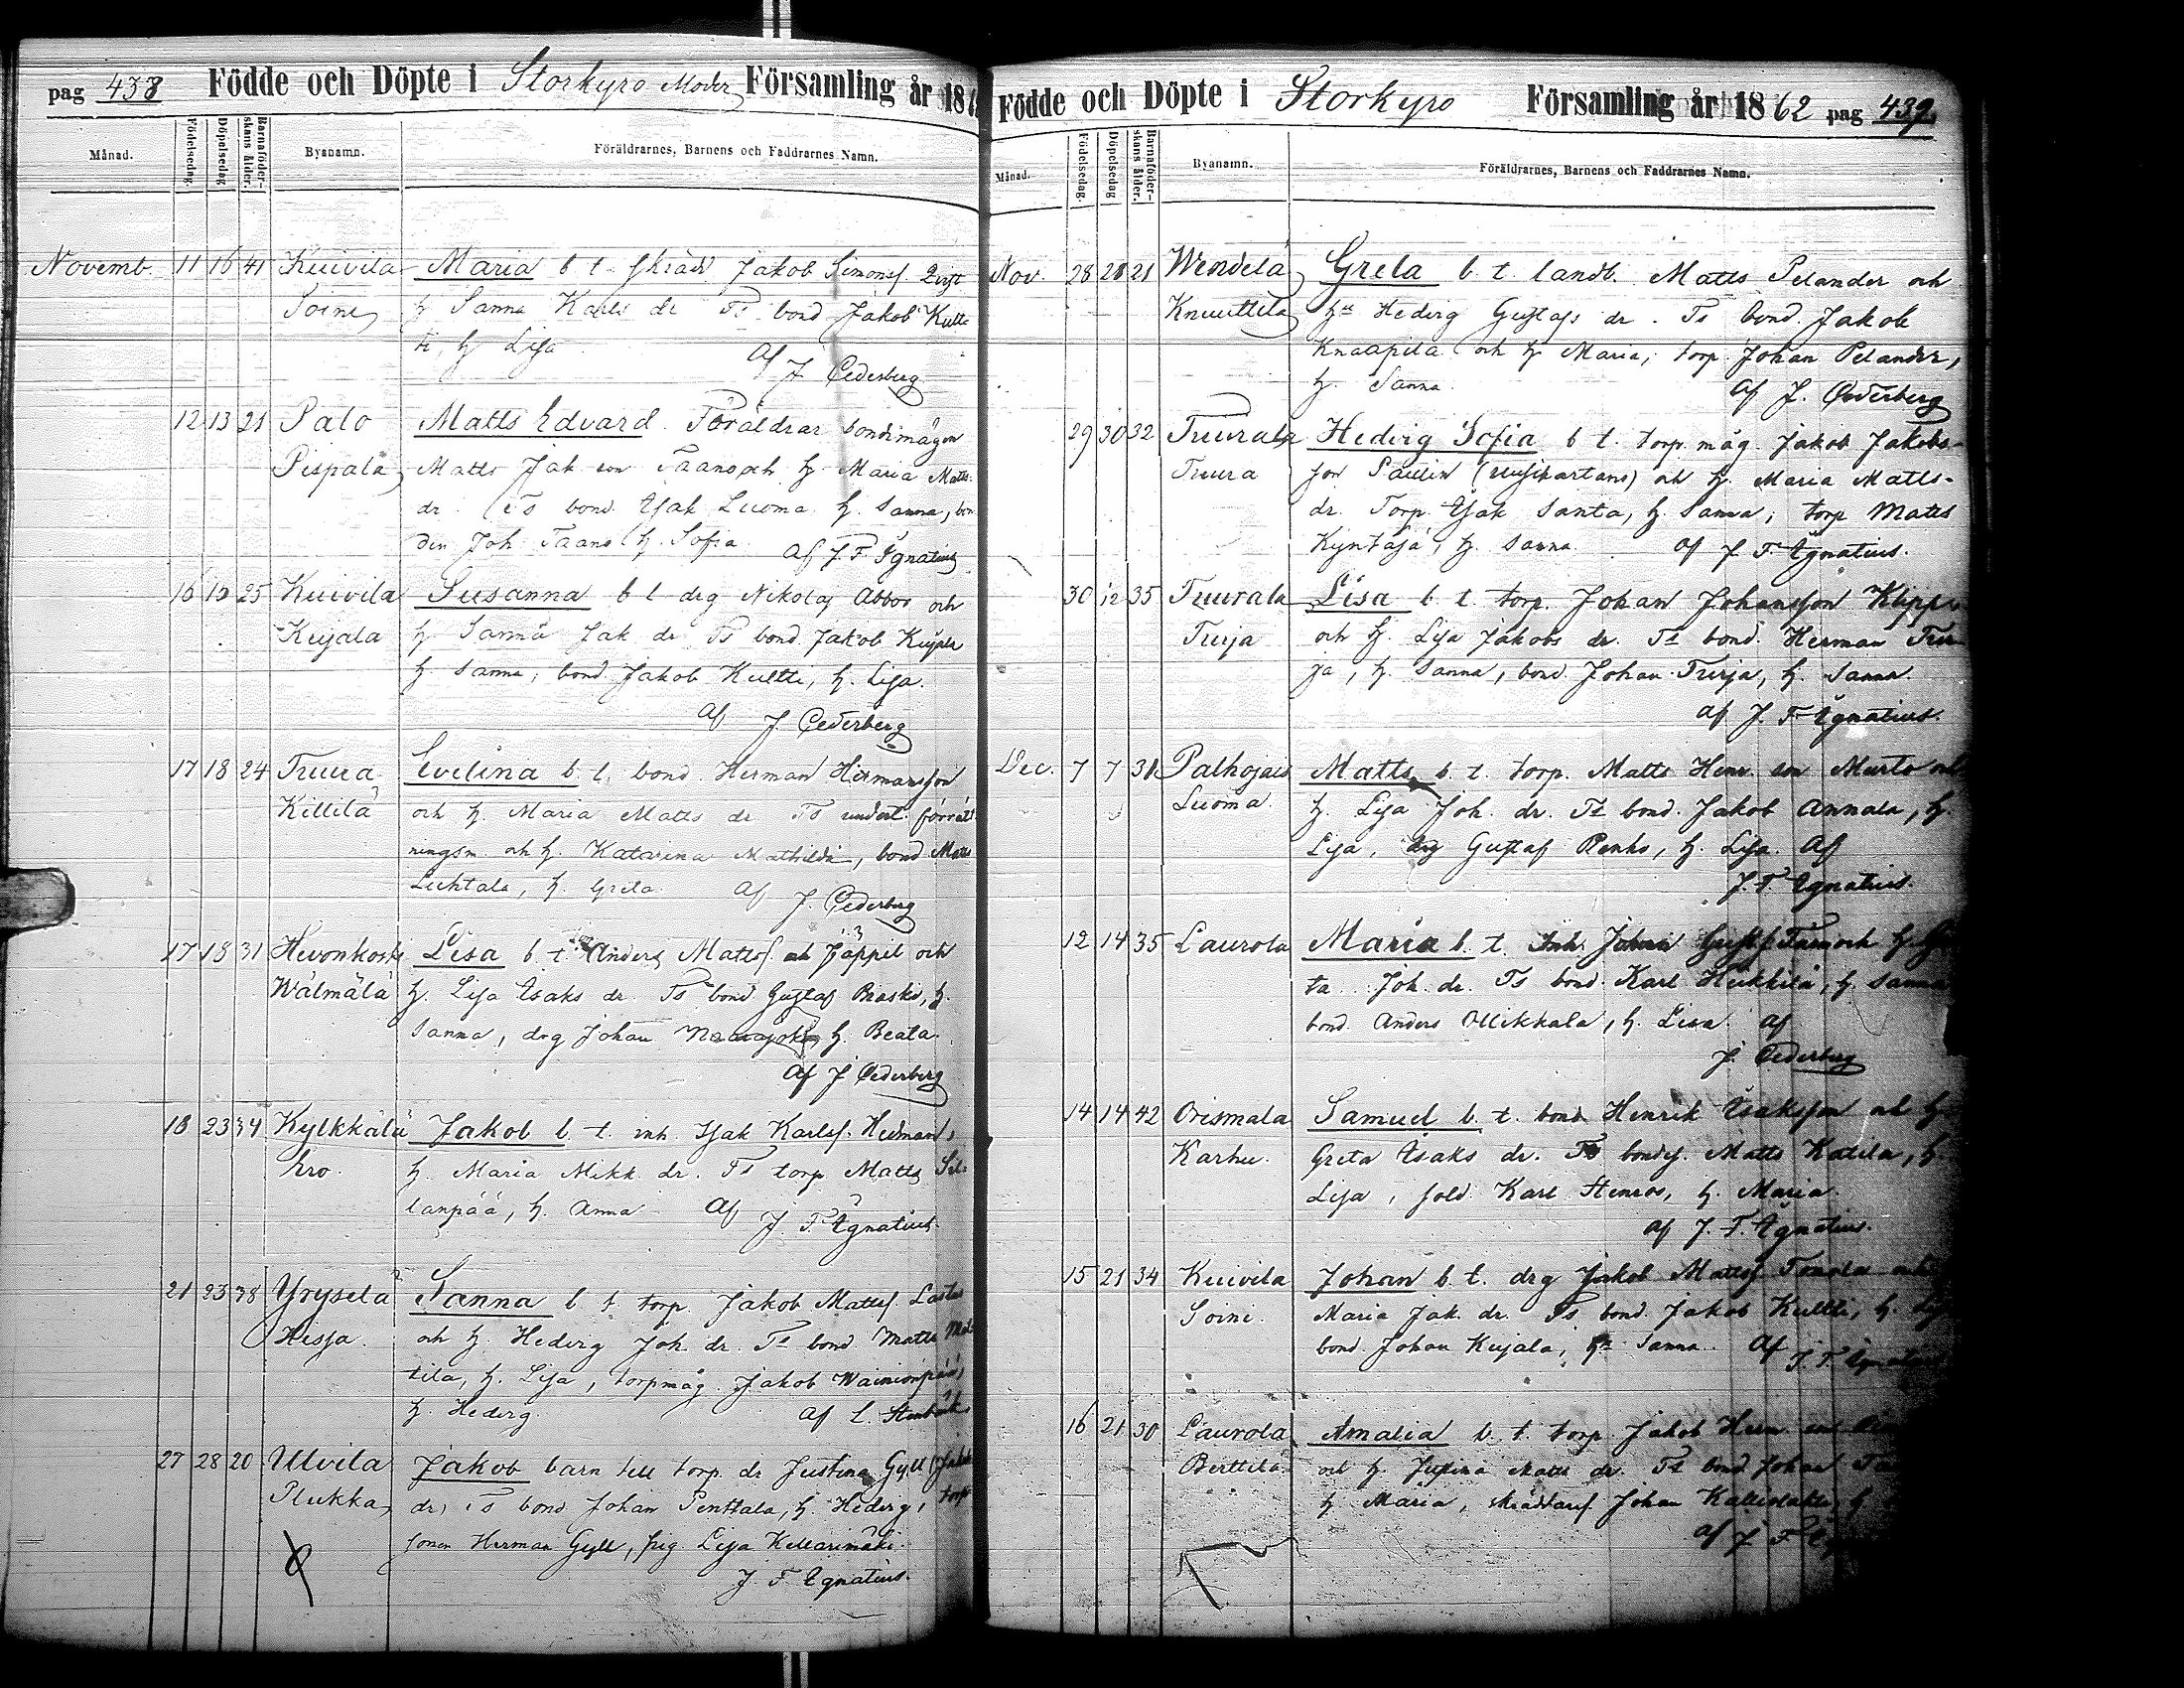 pag 438 Födde och Döpte i Storkyro Moder Församling år 186
Månad. Födelsedag. Döpelsedag Barnaföderskans ålder. Byanamn. Föräldrarnes, Barnens och Faddrarnes Namn.
Novemb. 11 16 41 Kuivila Maria b t. skrädd Jakob Simonss.
Soini h Sanna Karls dr Ts bond Jakob Kultti
h Lisa Af J Cederberg
12 13 21 Palo Matts Edvard. Föräldrar bondemågen
Pispala Matts Jak son Taans och h. Maria Matts
dr. Ts bond. Isak Luoma h. Sanna, bon
den Joh Taans h. Sofia. Af J. F. Ignatius
16 16 25 Kuivila Susanna b t drg Nikolaj Abbor och
Kujala h Sanna Jak dr Ts bond Jakob Kujala
h Sanna, bond Jakob Kultti, h. Lisa.
Af J. Cederberg
17 18 24 Tuura Evelina b. t. bond. Herman Hermansson
Killilä och h. Maria Matts dr Ts undert. förrätt
ningsm. och h. Katarina Mathilda, bond Matts
Luhtala, h. Greta. Af J. Cederberg
17 18 31 Hevonkoski Lisa b t. Anders Mattss. Jäppil och
Wälmälä h. Lisa Isaks dr. Ts bond Gustaf Braski, h.
Sanna, drg Johan h. Beata.
Af J Cederberg
18 23 34 Kylkkälä Jakob b. t. inh. Isak Karlss. Hedman,
kro. h. Maria Mikk dr. Ts torp Matts Sil
lanpää, h. Anna Af J. F. Ignatius.
21 23 38 Yryselä Sanna b t torp. Jakob Mattss.
Hissa. och h. Hedvig Joh dr. Ts bond. Matts Mat
tila, h. Lisa, torpmåg. Jakob Wainionpää,
h. Hedvig. Af L. Stenbäck
27 28 20 Ulvila Jakob barn till torp. dr Justina Gyll Jakobs
Plukka dr, Ts bond Johan Penttala, h. Hedvig, torp
sonen Herman Gyll, pig Lisa Kellarimäki.
J. F. Ignatius.
Födde och Döpte i Storkyro Församling år 1862 pag 439
Månad. Födelsedag. Döpelsedag Barnaföderskans ålder. Byanamn. Föräldrarnes, Barnens och Faddrarnes Namn.
Nov. 28 28 21 Wendelä Greta b. t. landb. Matts Pelander och
Knuuttila hu Hedvig Gustafs dr. Ts bond. Jakob
Knaapila och h. Maria, torp. Johan Pelander,
h. Sanna. Af J. Cederberg
29 30 32 Tuurala Hedvig Sofia b t. torp. måg. Jakob Jakobs-
Tuura son Paulin och h. Maria Matts-
dr. Torp. Isak Santa, h. Sanna, torp Matts
Kyntäjä, h. Sanna. Af J. F. Ignatius.
30 12 35 Tuurala Lisa b. t. torp. Johan Johansson Klippo
Turja och h. Lisa Jakobs dr. Ts bond. Herman Tur
ja, h. Sanna, bond. Johan Turja, h. Sanna.
af J. F. Ignatius.
Dec. 7 7 38 Palhojais Matts b. t. torp. Matts Henr. son Murto och
Luoma. h. Lisa Joh. dr. Ts bond. Jakob Annala, h.
Lisa, drg Gustaf Renko, h. Lisa. Af
J. F. Ignatius.
12 14 35 Laurola Maria b. t. Inh. Johan Gustfs och h. Gre
ta Joh. dr. Ts bond. Karl Heikkilä, h. Sanna
bond. Anders Ollikkala, h. Lisa. Af
J. Cederberg
14 14 42 Orismala Samuel b. t. bond Henrik Isaksson och h
Karhu. Greta Isaks dr. Ts bondes. Matts Katila, h.
Lisa, sold Karl Stenros, h. Maria.
af J. F. Ignatius.
15 21 34 Kuivila Johan b. t. drg Jakob Mattss och
Soini. Maria Jak. dr. Ts bond. Jakob Kultti, h.
bond. Johan Kujala, hu Sanna. Af J. F. Ignatius
16 21 30 Laurola Amalia b. t. torp. Jakob Herm. son
Berttila och h. Matts dr. Ts bond Johan
h Maria, skräddares. Johan h
af J F